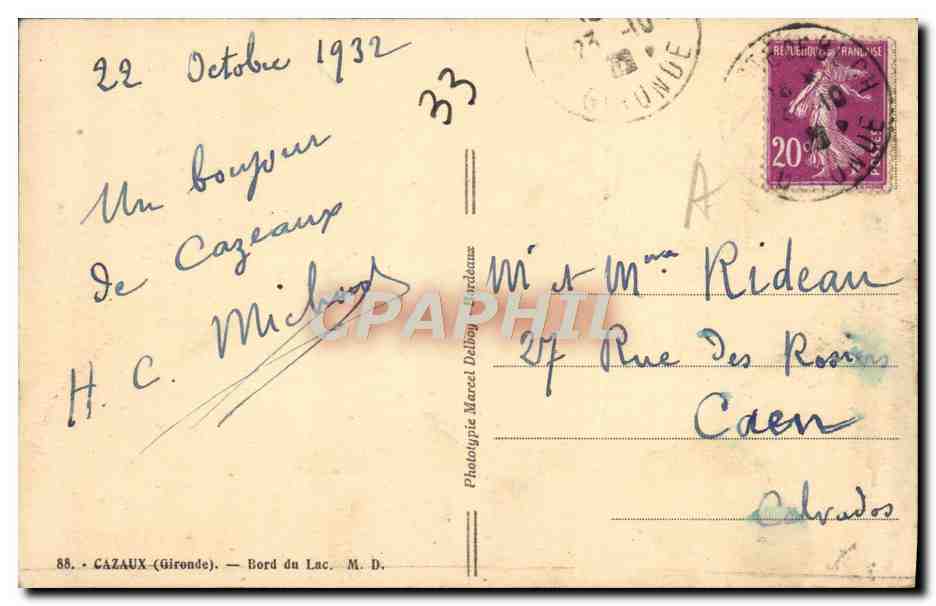 22 Octobre 1932
33
Un bonjour
de Cazeaux
H. C.
A
23 -10
GIRONDE
REPUBLIQUE FRANÇAISE
20c
POSTES
10
Phototypie Marcel Delboy - Bordeaux
Mr et Mme Rideau
27 Rue Des Rosiers
Caen
Calvados
CPAPHIL
88. - CAZAUX (Gironde). — Bord du Lac. M. D.